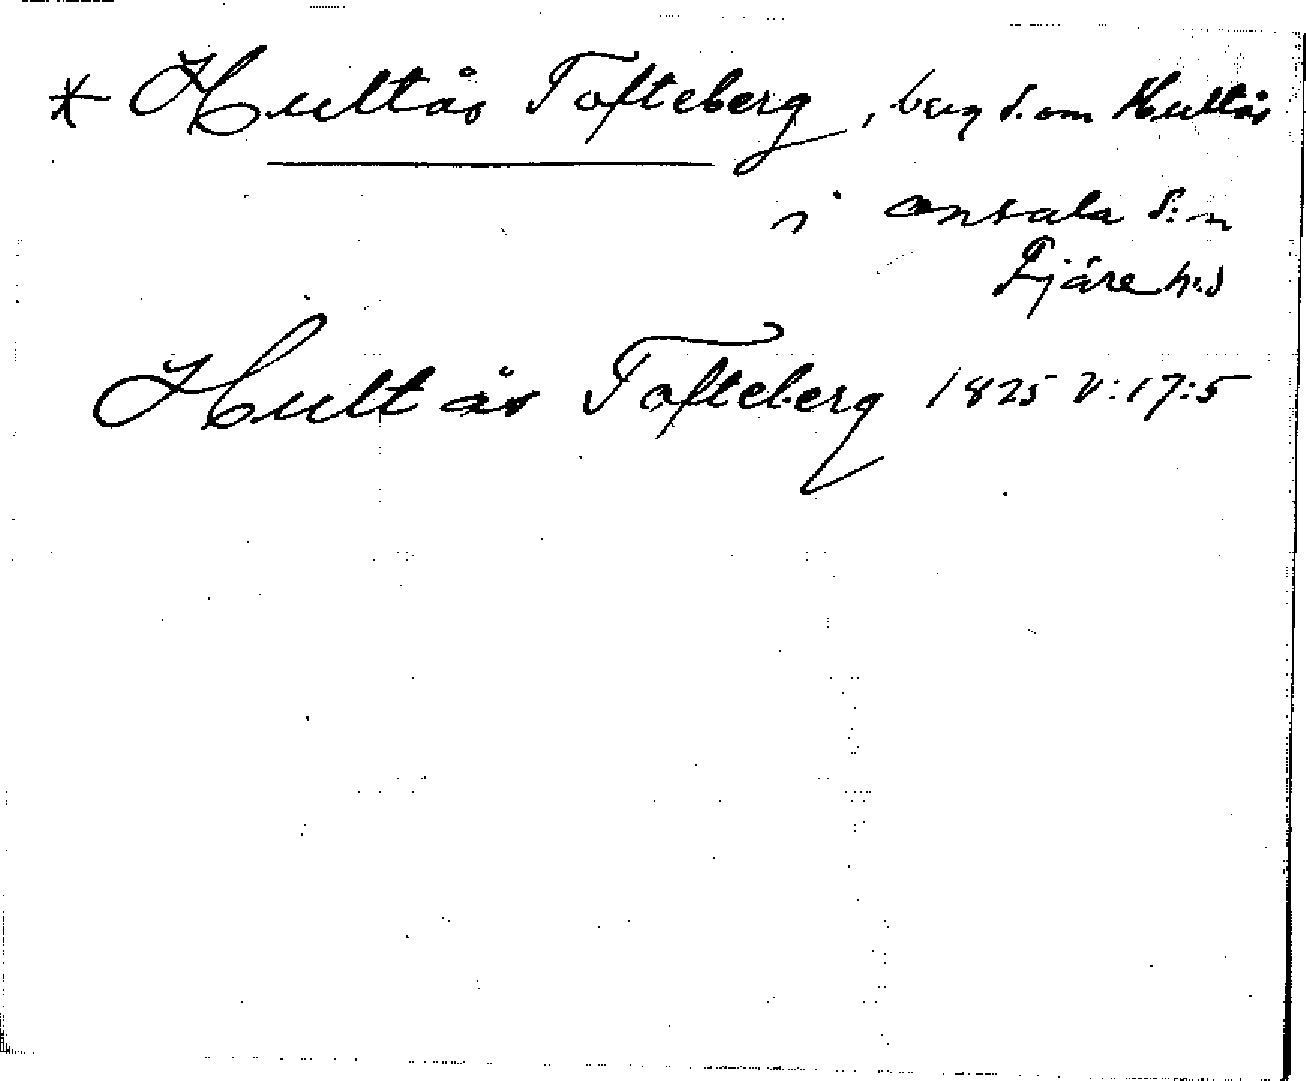 * Hultås Tofteberg, berg s. om Hultås
i Onsala s:n
Fjäre h:d
Hultås Tofteberg 1825 V:17:5